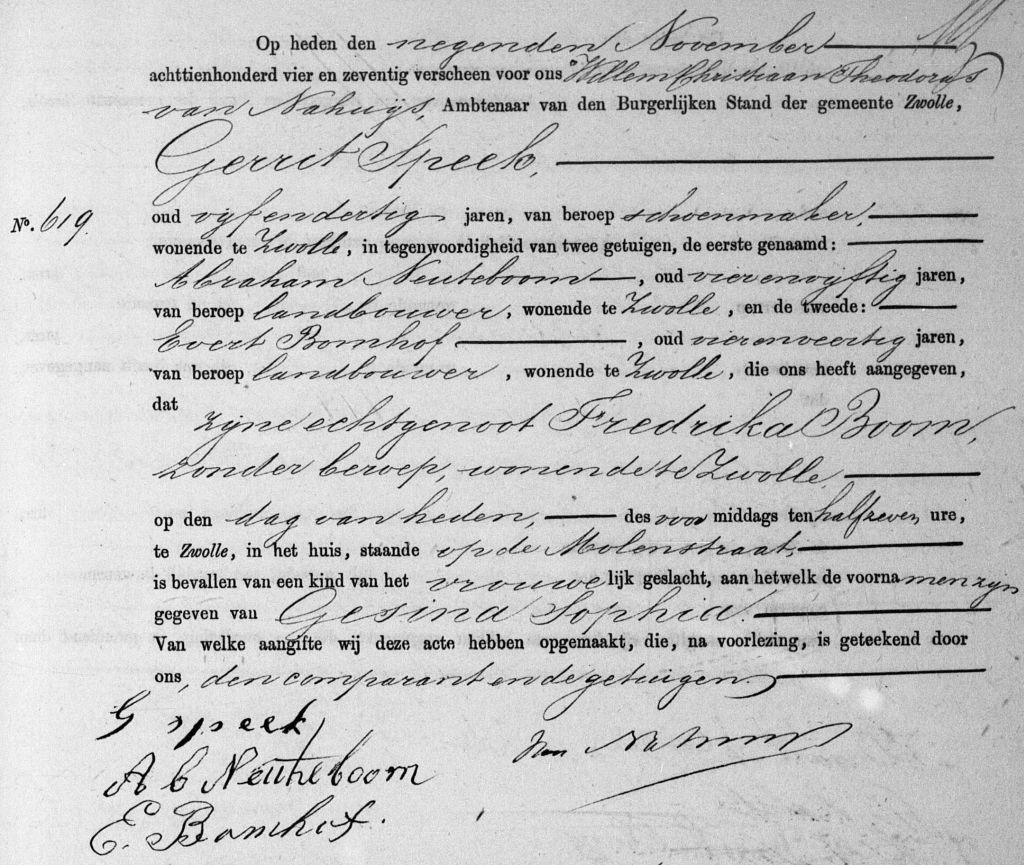 Op heden den negenden November
achttienhonderd vier en zeventig verscheen voor ons Willem Christiaan Theodorus
van Nahuys, Ambtenaar van den Burgerlijken Stand der gemeente Zwolle,
Gerrit Speek,
No. 619.
oud vyfendertig jaren, van beroep schoenmaker,
wonende te Zwolle, in tegenwoordigheid van twee getuigen, de eerste genaamd:
Abraham Neuteboom, oud vierenvyftig jaren,
van beroep landbouwer, wonende te Zwolle, en de tweede:
Evert Bomhof, oud vierenveertig jaren,
van beroep landbouwer, wonende te Zwolle, die ons heeft aangegeven,
dat
zyne echtgenoot Fredrika Boom,
zonder beroep, wonende te Zwolle,
op den dag van heden, des voor middags ten half zeven ure,
te Zwolle, in het huis, staande op de Molenstraat,
is bevallen van een kind van het vrouwelijk geslacht, aan hetwelk de voornamen zyn
gegeven van Gesina Sophia.
Van welke aangifte wij deze acte hebben opgemaakt, die, na voorlezing, is geteekend door
ons, den comparant en de getuigen.
G speek
A b Neuteboom
E. Bomhof.